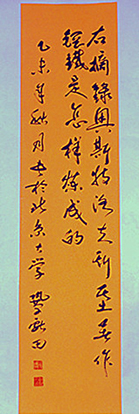 右摘录奥斯特洛夫斯基著作
钢铁是怎样炼成的
乙未年秋月书于北京大学